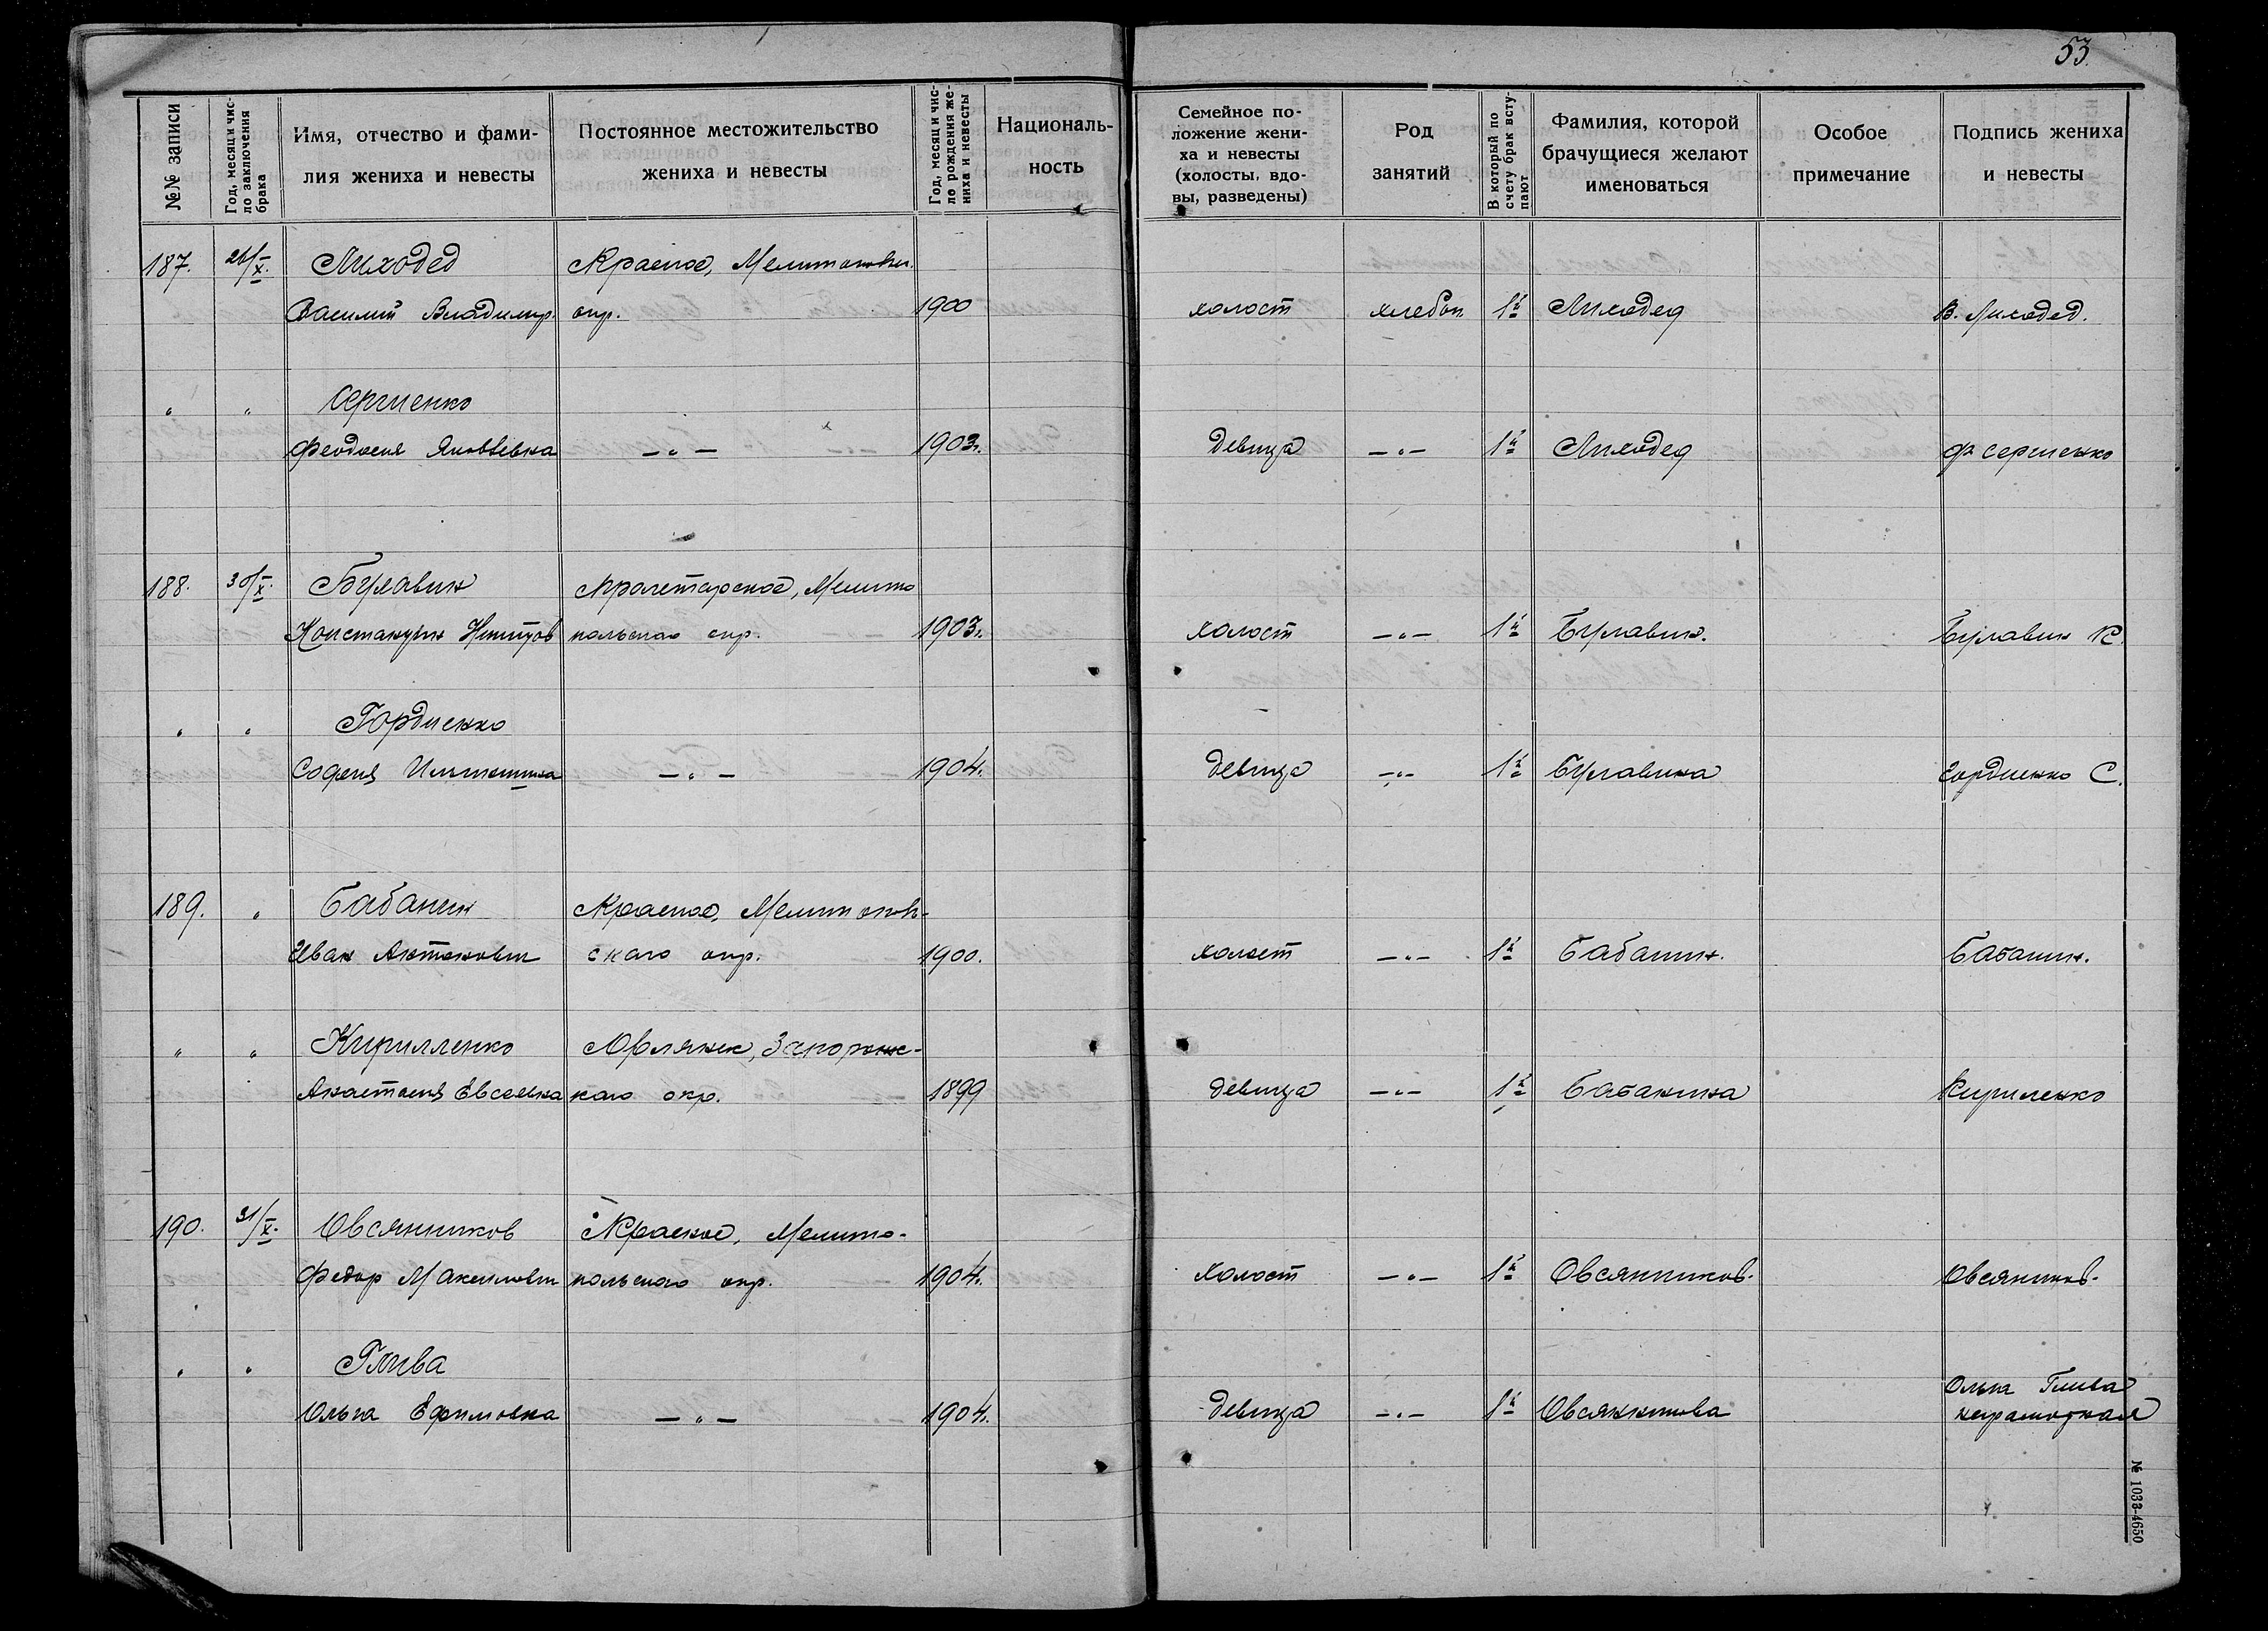 53
№№ записи
Год, месяц и чис-
ло заключения
брака
Имя, отчество и фами-
лия жениха и невесты
Постоянное местожительство
жениха и невесты
Год, месяц и чис-
ло рождения же-
ниха и невесты
Националь-
ность
Семейное по-
ложение жени-
ха и невесты
(холосты, вдо-
вы, разведены)
Род
занятий
В который по
счету брак всту-
пают
Фамилия, которой
брачущиеся желают
именоваться
Особое
примечание
Подпись жениха
и невесты
187. 26/X. Лиходед Красное,
Василий Владимир. окр. 1900 холост хлебоп. 1й Лиходед В. Лиходед.
" " Сергиенко
Феодосия Яковлевна —"— 1903. девица —"— 1й Лиходед Ф Сергиенко
188. 30/X. Булавин Пролетарское, Мелито
Константин польского окр. 1903. холост —"— 1й Булавин. Булавин К.
" " Гордиенко
Софья —"— 1904. девица —"— 1й Булавина Гордиенко С.
189. " Бабанин Красное, Мелитополь-
Иван Антонович ского окр. 1900. холост —"— 1й Бабанин. Бабанин.
" " Кирилленко Орлянск, Запорожс-
Анастасия Евсеевна каго окр. 1899 девица —"— 1й Бабанина Кириленко
190. 31/X. Овсянников Красное, Мелито-
Федор Максимович польского окр. 1904. холост —"— 1й Овсянников. Овсяников.
" " Глива
Ольга Ефимовна —"— 1904. девица —"— 1й Овсянникова Ольга Глива
неграмотная
№ 1033-4650